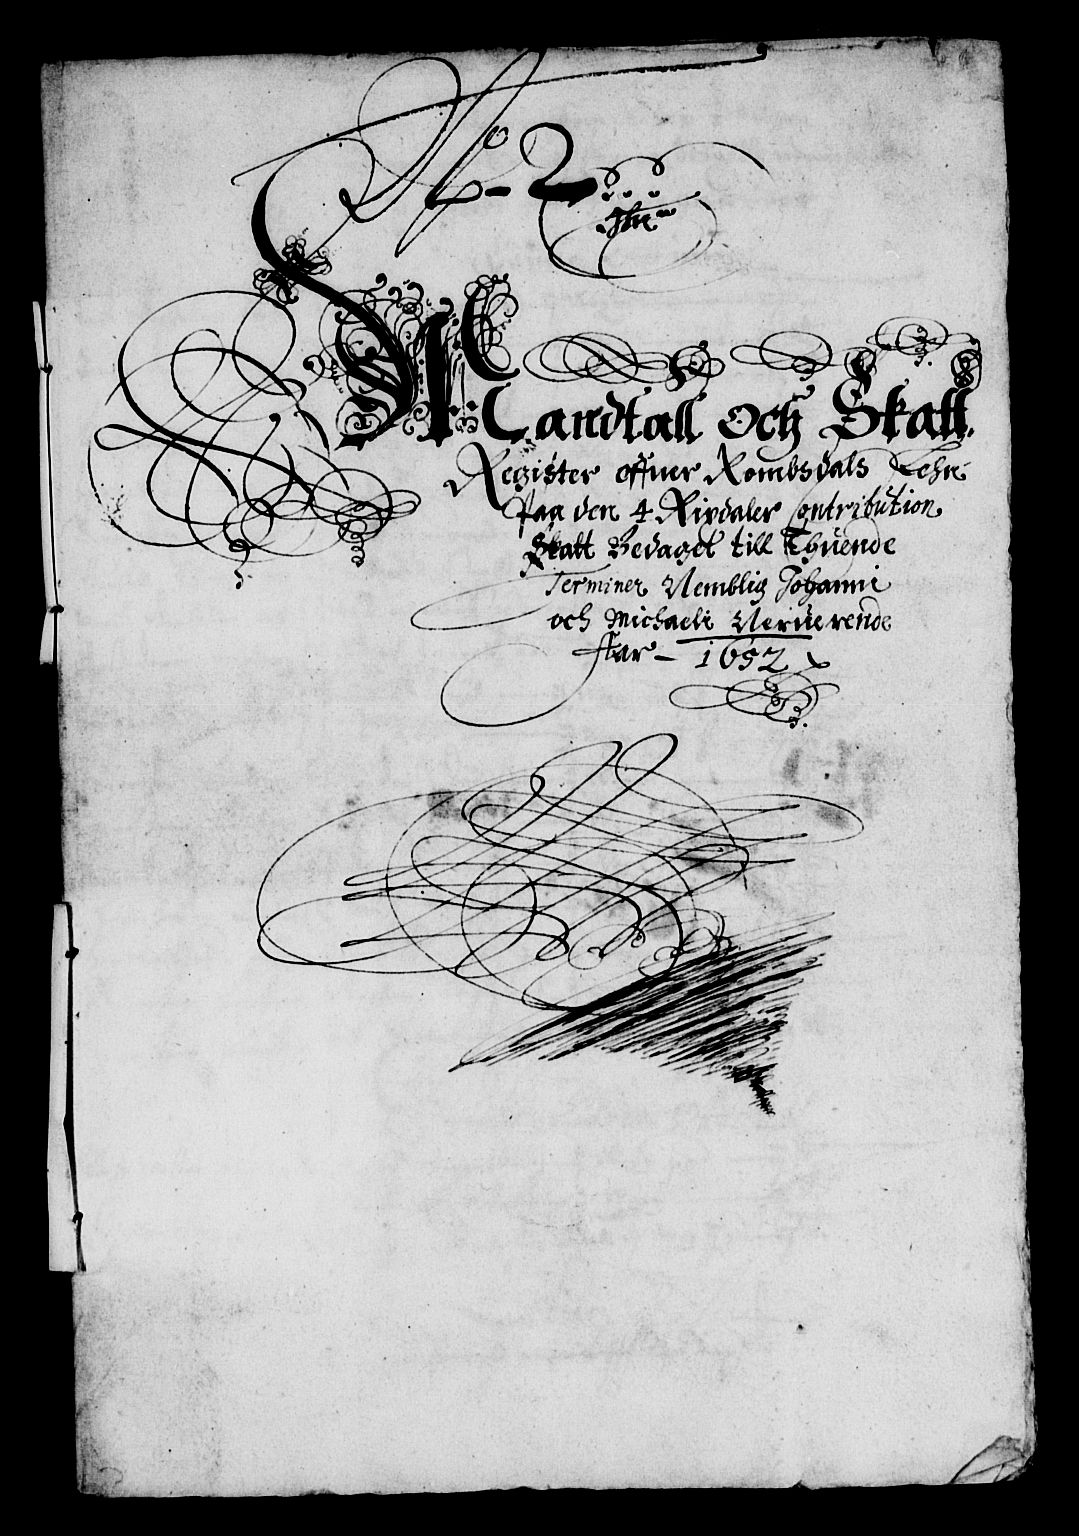 No - 2
Mandtall och Skatt
Register offuer Rombsdals Lehn
Paa den 4 Rixdaler Contribution
Skatt Bedaget till Thuende
Terminer Nemblig Johanni
och Michaeli Neruerende
Aar - 1652